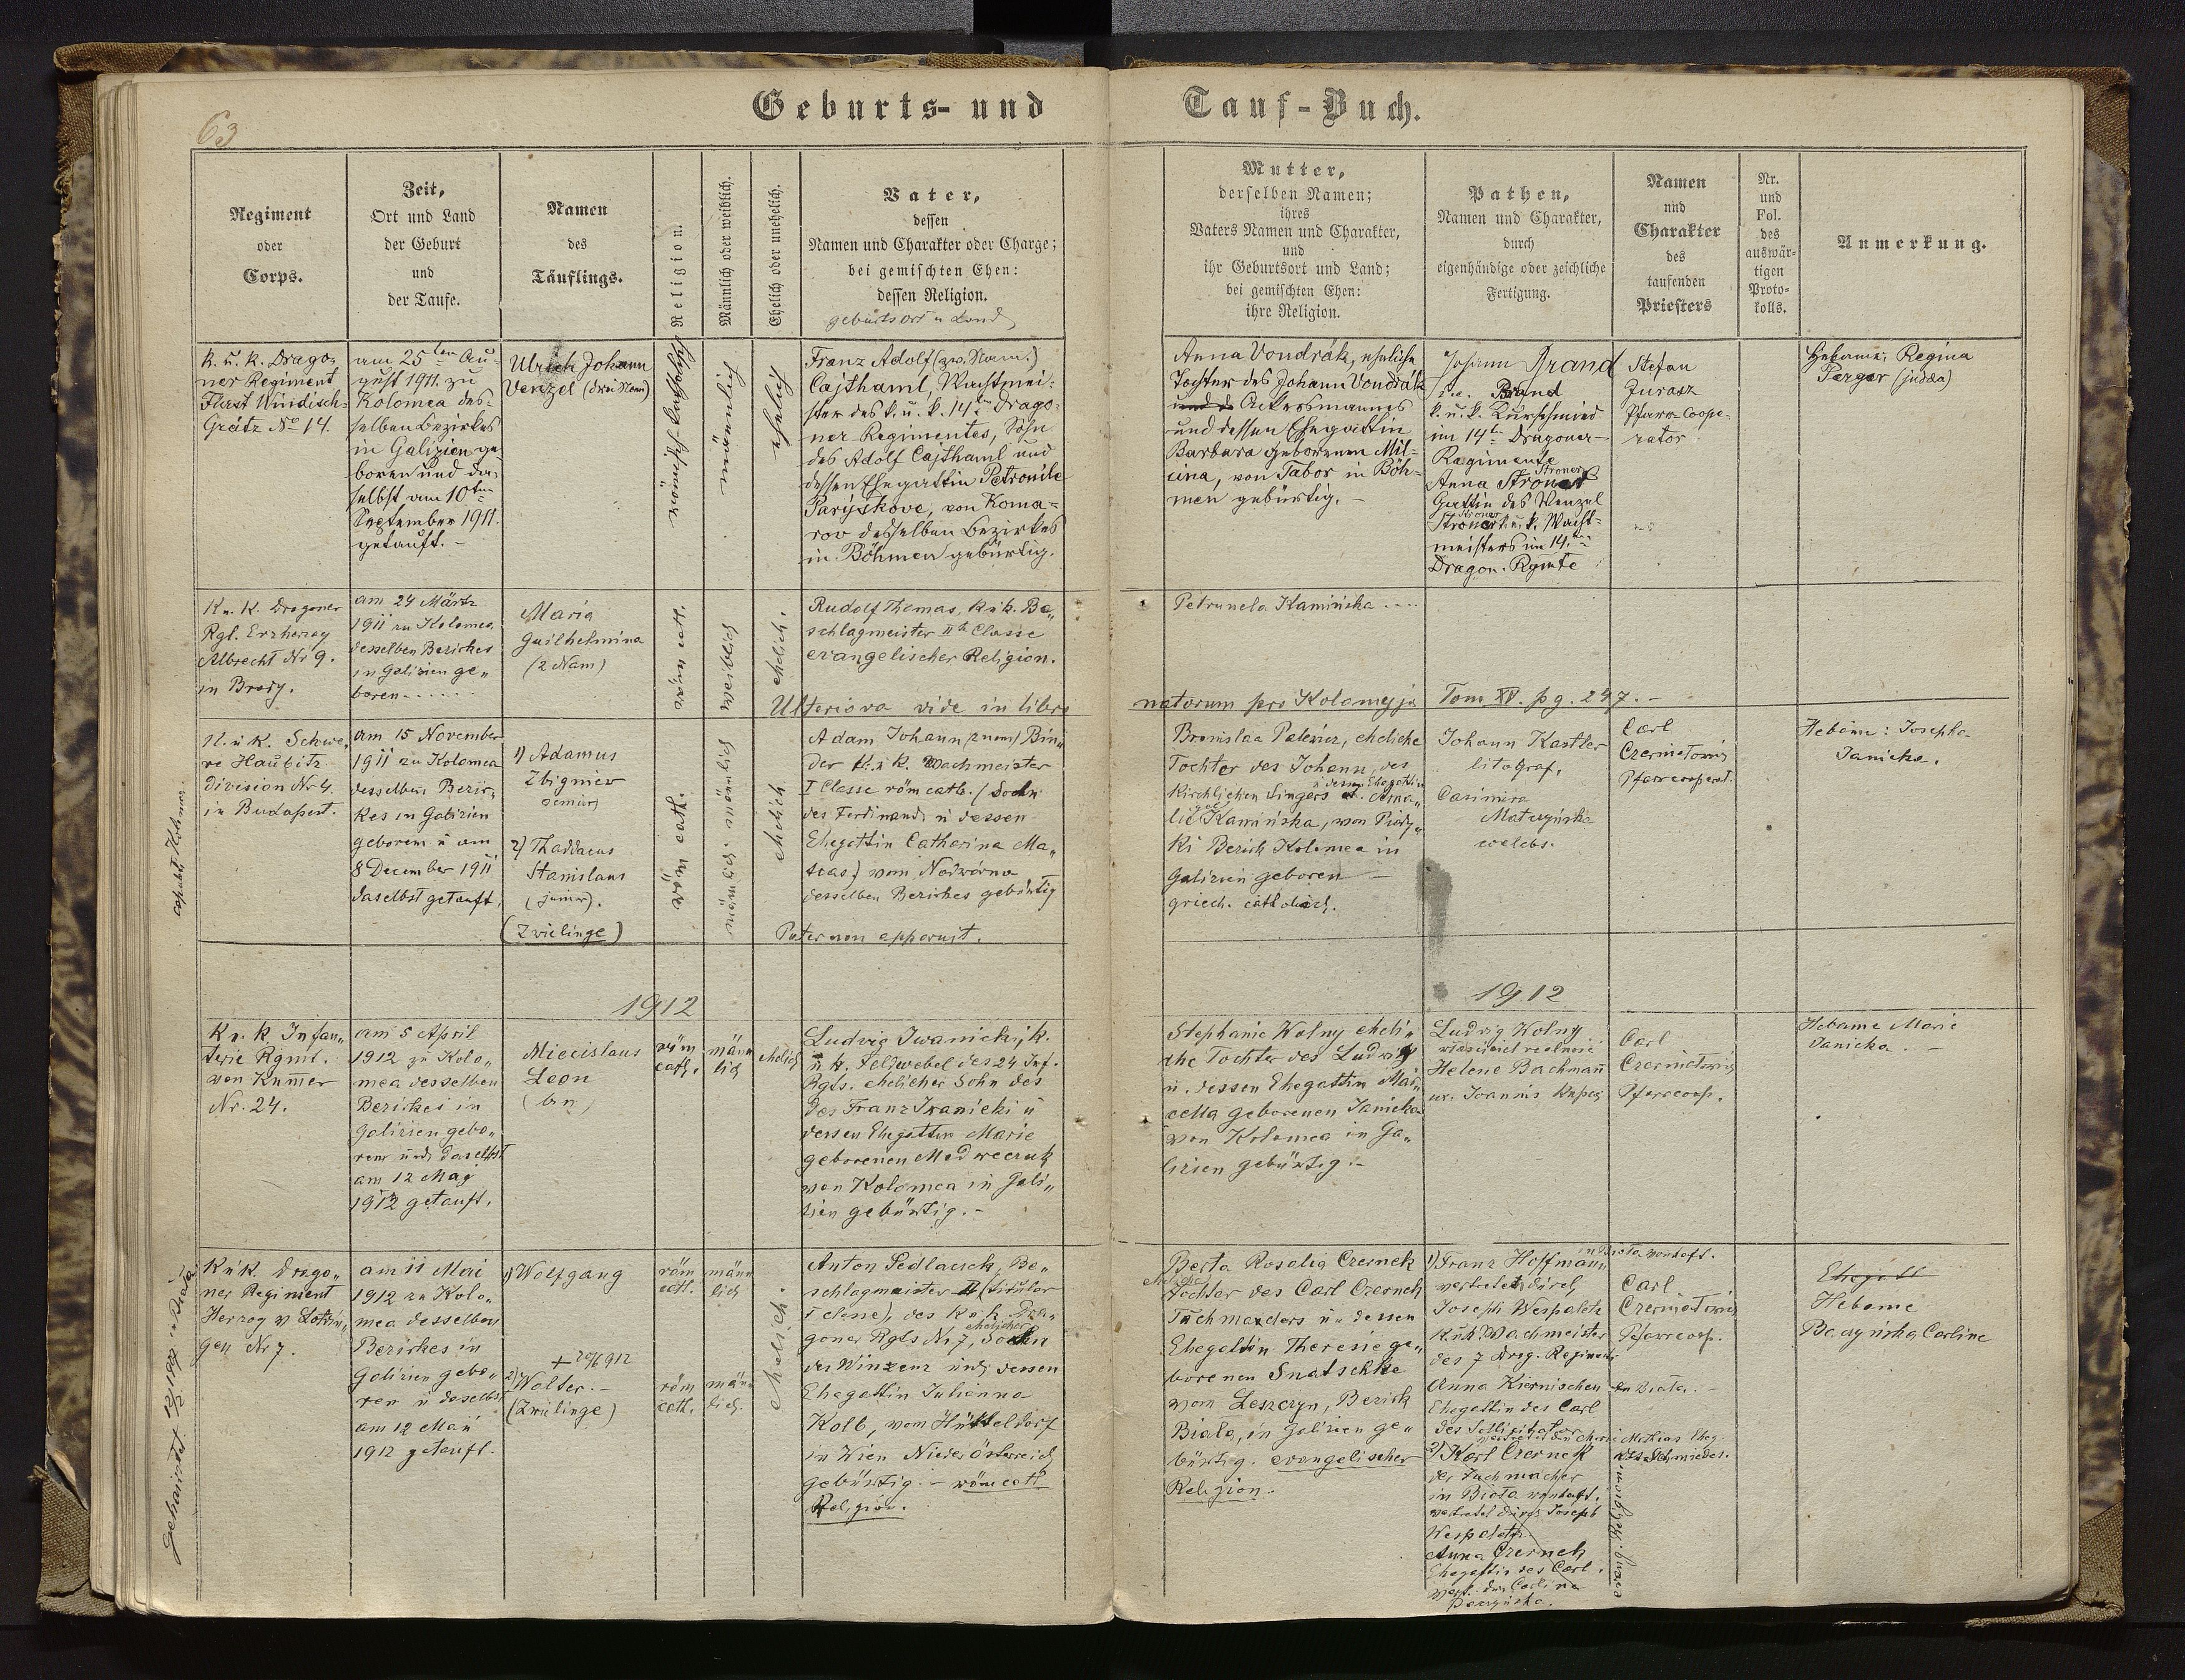 Geburts- und Tauf-Buch.
63
Regiment
oder
Corps.
Zeit,
Ort und Land
der Geburt
und
der Taufe.
Namen
des
Täuflings.
Religion.
Männlich oder weiblich.
Ehelich oder unehelich.
Vater,
dessen
Namen und Charakter oder Charge;
bei gemischten Ehen:
dessen Religion.
geburtsort u Land
Mutter,
derselben Namen;
ihres
Vaters Namen und Charakter,
und
ihr Geburtsort und Land;
bei gemischten Ehen:
ihre Religion.
Pathen,
Namen und Charakter,
durch
eigenhändige oder zeichliche
Fertigung.
Namen
und
Charakter
des
taufenden
Priesters
Nr.
und
Fol.
des
auswär-
tigen
Proto-
kolls.
Anmerkung.
K. u. k. Drago-
ner Regiment
Fürst Windisch-
Grätz No 14.
am 25ten Au-
gust 1911. zu
Kolomea des-
selben Bezirkes
in Galizien ge-
boren und da-
selbst am 10ten
September 1911.
getauft. -
Ulrich Johann
Venzel (drei Nam)
römisch katholisch
männlich
ehelich
Franz Adolf (zw. Nam.)
Cajthaml, Wachtmei-
ster des k. u. k. 14ten Drago-
ner Regimentes, Sohn
des Adolf Cajthaml und
dessen Ehegattin Petronile
Paryskove, von Koma-
rov desselben Bezirkes
in Böhmen gebürtig.
Anna Vondrák, eheliche
Tochter des Johann Vondrák
Ackersmannes
und dessen Ehegattin
Barbara geborenen Mil-
cina, von Tabor in Böh-
men gebürtig. -
Johann Brand
Brand
k. u. k. Kurschmied
im 14t Dragoner-
Regimente
Stroner
Anna
Gattin des Wenzel
Stroner k. u. k. Wacht-
meisters im 14.
Dragon. Rgmte
Stefan
Jurasz
Pfarr Coope-
rator
Hebame, Regina
Perger (judäa)
K u. K. Dragoner
Rgt. Erzherzog
Albrecht Nr 9.
in Brody.
am 24 März
1911 zu Kolomea
desselben Bezirkes
in Galizien ge„
boren......
Maria
Guilhelmina
(2 Nam)
röm cath.
weiblich
ehelich.
Rudolf Thomas, K u k. Be„
schlagmeister IIter Classe
evangelischer Religion.
Petrunela Kamińska....
Ulteriora vide in libro natorum pro Kolomyja Tom XV. pg. 247. -
K. u K. Schwe„
re Haubitz
division Nr 4.
in Budapest.
am 15 November
1911 zu Kolomea
desselben Bezir„
kes in Galizien
geboren u am
8 December 1911
daselbst getauft.
1) Adamus
Zbigniew
(senior)
2) Thaddaeus
Stanislaus
(junior).
(Zwielinge)
röm cath.
männlich
männlich
ehelich
Adam Johann (2 nom) Bin„
der K. u K. Wachmeister
I Classe röm cath. / Sohn
des Ferdinands u dessen
Ehegattin Catharina Ma„
von Nadwórna
desselben Bezirkes gebürtig
Pater non apparuit.
Bronislaa Palewicz, eheliche
Tochter des Johann, des
Kirchlichen Singers u. dessen Ehegattin Ama„
lie Kamińska, von Piady„
ki Bezirk Kolomea in
Galizien geboren -
griech. catholisch.
Johann Kastler
litograf,
Casimira
Matuzyńska
coelebs.
Carl
Czerniatowicz
Pfarrcooperat.
Hebame: Josepha
Janicka.
1912
1912
K u. K Infan„
terie Rgmt.
von Kummer
Nr. 24.
am 5 April
1912 zu Kolo„
mea desselben
Bezirkes in
Galizien gebo„
ren und daselbst
am 12 May
1912 getauft.
Miecislaus
Leon
(bn)
röm
cath.
männ
lich
ehelich
Ludvig Iwanicki, k.
u k. Feldwebel des 24 Inf.
Rgts. ehelicher Sohn des
des Franz Iwanicki u
dessen Ehegattin Marie
geborenen Medweczuk
von Kolomea in Gali„
zien gebürtig. -
Stephanie Wolny eheli„
che Tochter des Ludwig
u. dessen Ehegattin Mar„
cella geborenen Janicka
von Kolomea in Ga„
lizien gebürtig. -
Ludwig Wolny
właściciel realności
Helene Bachmann
ux. Joannis
Carl
Czerniatowicz
Pfarrcoop.
Hebame Marie
Janicka. -
K u K. Drago„
ner Regiment
Herzog v Lothrin„
gen Nr 7.
am 11 Mai
1912 zu Kolo„
mea desselben
Bezirkes in
Galizien gebo„
ren u daselbst
am 12 Mai
1912 getauft.
1) Wolfgang
2) Walter. -
(Zwilinge)
röm
cath.
männ
lich
röm
cath.
män
lich.
ehelich.
Anton Sedlaczek, Be„
schlagmeister II (titular
I classe), des K u K. Dra„
goner Rgts Nr 7, ehelicher Sohn
des Winzenz und dessen
Ehegattin Julianna
Kolb, vom Hütteldorf
in Wien Nieder Österreich
gebürtig. - röm cath
Religion.
Berta Rosalia Czernek
eheliche
Tochter des Carl Czernek
Tuchmachers u. dessen
Ehegattin Theresie ge„
borenen Snatschke
vom Leszczyn, Bezirk
Biala, in Galizien ge„
bürtig. evangelischer
Religion.
1) Franz Hoffmann
in Biala wonhaft.
vertreten durch
Joseph Wespaletz
K u K Wachmeister
des 7 Drag. Regiments
Anna Kiernischen in Biala. -
Ehegattin des Carl
2) Karl Czernek
der Tuchmacher
in Biala wonhaft.
vertretet durch Joseph
Wespaletz
Anna Czernek
Ehegattin des Carl.
vert. dur Carline
Baczyńska.
evang. Religion.
Carl
Czerniatowicz
Pfarrcoop.
Hebame
Baczyńska Carline